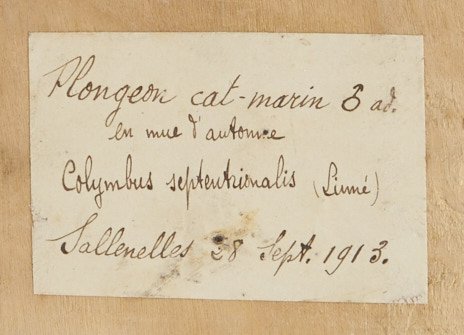 Plongeon cat-marin ♂ ad.
en mue d'automne
Colymbus septentrionalis (Linné)
Sallenelles 28 Sept. 1913.